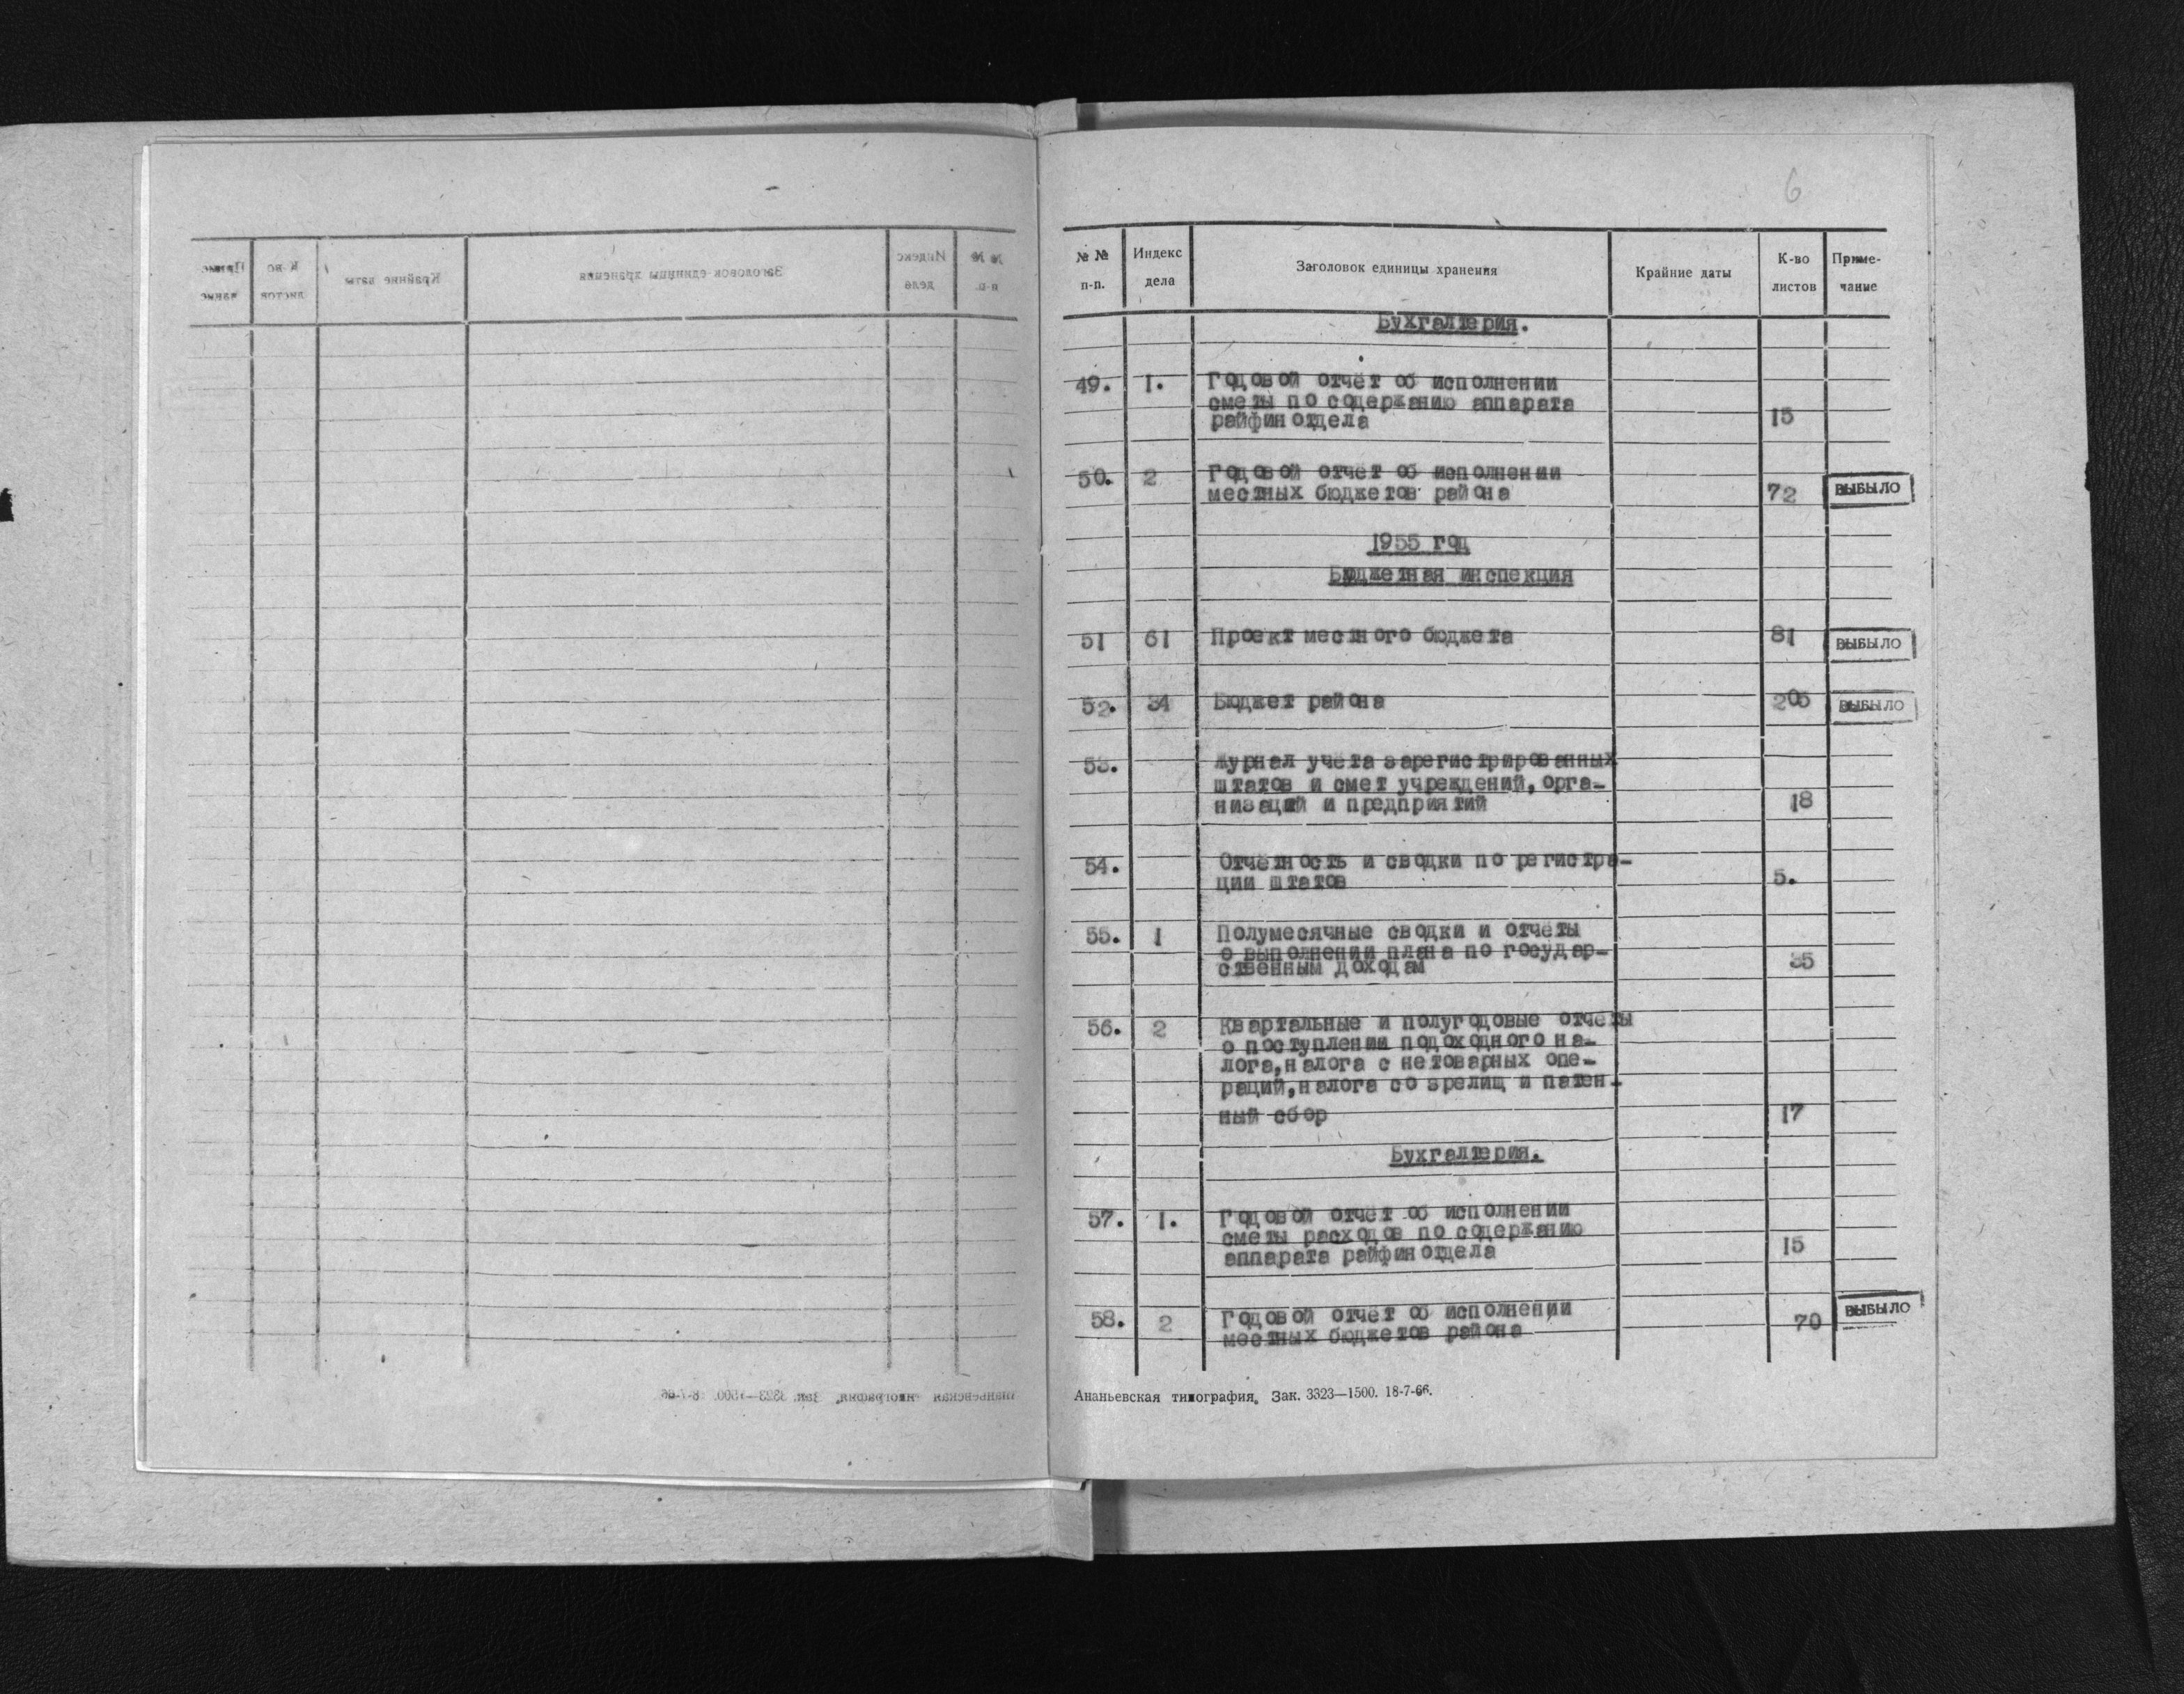 6
№ № п-п. Индекс дела Заголовок единицы хранения Крайние даты К-во листов Приме-чание
Бухгалтерия.
49. 1. Годовой отчет об исполнении
сметы по содержанию аппарата
райфинотдела 15
50. 2 Годовой отчет об исполнении
местных бюджетов района 72 ВЫБЫЛО
1955 год
Бюджетная инспекция
51 61 Проект местного бюджета 81 ВЫБЫЛО
52. 34 Бюджет района 205 ВЫБЫЛО
53. Журнал учета зарегистрированных
штатов и смет учреждений, орга-
низаций и предприятий 18
54. Отчетность и сводки по регистра-
ции штатов 5.
55. 1 Полумесячные сводки и отчеты
о выполнении плана по государ-
ственным доходам 35
56. 2 Квартальные и полугодовые отчеты
о поступлении подоходного на-
лога, налога с нетоварных опе-
раций, налога со зрелищ и патен-
ный сбор 17
Бухгалтерия.
57. 1. Годовой отчет об исполнении
сметы расходов по содержанию
аппарата райфинотдела 15
58. 2 Годовой отчет об исполнении
местных бюджетов района 70 ВЫБЫЛО
Ананьевская типография. Зак. 3323—1500. 18-7-66.